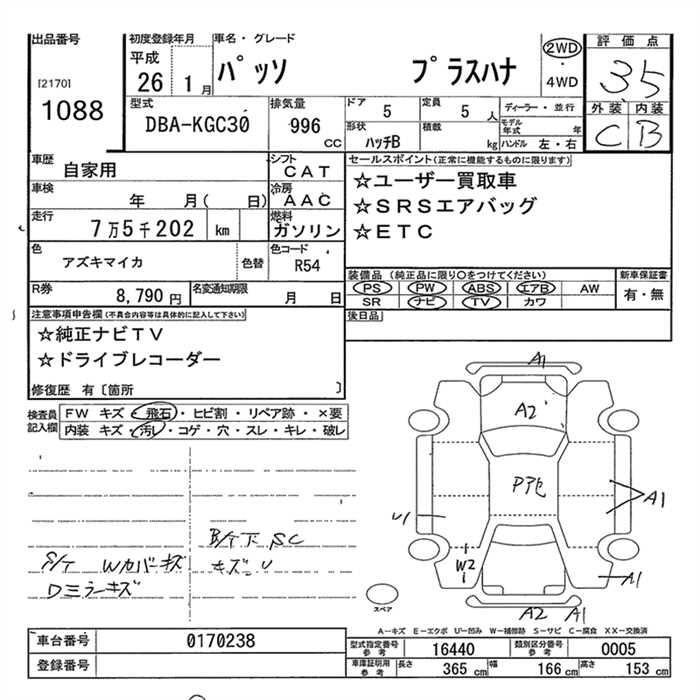 出品番号 初度登録年月 車名・グレード 2WD 評価点
[2170] 平成 26 1月 パッソ プラスハナ ・ 35
1088 4WD
型式 排気量 ドア 5 定員 5人 ディーラー・並行 外装 内装
DBA-KGC30 996 CC 形状 ハッチB 積載 kg モデル年式 年 C B
ハンドル 左・右
車歴 自家用 シフト CAT セールスポイント(正常に機能するものに限ります)
車検 年 月( 日) 冷房 AAC ☆ユーザー買取車
走行 7万5千202 km 燃料 ガソリン ☆SRSエアバッグ
☆ETC
色 アズキマイカ 色替 色コード R54
装備品(純正品に限り○をつけてください) 新車保証書
R券 8,790円 名変通知期限 月 日 PS PW ABS エアB AW 有・無
SR ナビ TV カワ
注意事項申告欄(不具合内容等は具体的に記入して下さい) 後日品
☆純正ナビTV
☆ドライブレコーダー
修復歴 有〔箇所 〕
検査員記入欄 FW キズ・飛石・ヒビ割・リペア跡・×要
内装 キズ・汚レ・コゲ・穴・スレ・キレ・破レ
A1
A2
A1
U1
W2
A1
A2 A1
B/T下 SC
キズ U
S/T Wカバーキズ
Dミラーキズ
スペア
A-キズ E-エクボ U-凹み W-補修跡 S-サビ C-腐食 XX-交換済
車台番号 0170238 型式指定番号参考 16440 類別区分番号参考 0005
登録番号 車庫証明用参考 長さ 365 cm 幅 166 cm 高さ 153 cm